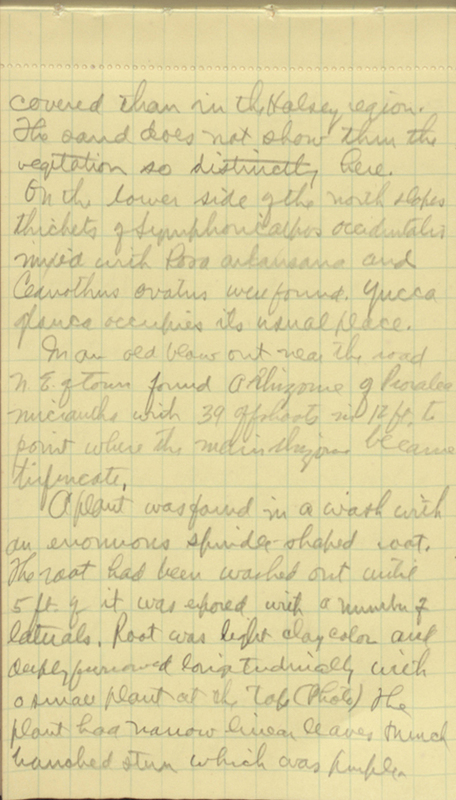 covered than in the Halsey region.
The sand does not show thru the
vegetation so distinctly here.
On the lower side of the north slopes
thickets of Symphoricarpos occidentalis
mixed with Rosa arkansana and
Ceanothus ovatus were found. Yucca
glauca occupies its usual place.
In an old blow out near the road
N.E. of town found a rhizome of Psoralea
micrantha with 39 offshoots in 12 ft. to
point where the main rhizome became
bifurcate.
A plant was found in a wash with
an enormous spindle-shaped root.
The root had been washed out until
5 ft. of it was exposed with a number of
laterals. Root was light clay color and
deeply furrowed longitudinally with
a small plant at the top (Photo) The
plant had narrow linear leaves & much
branched stem which was